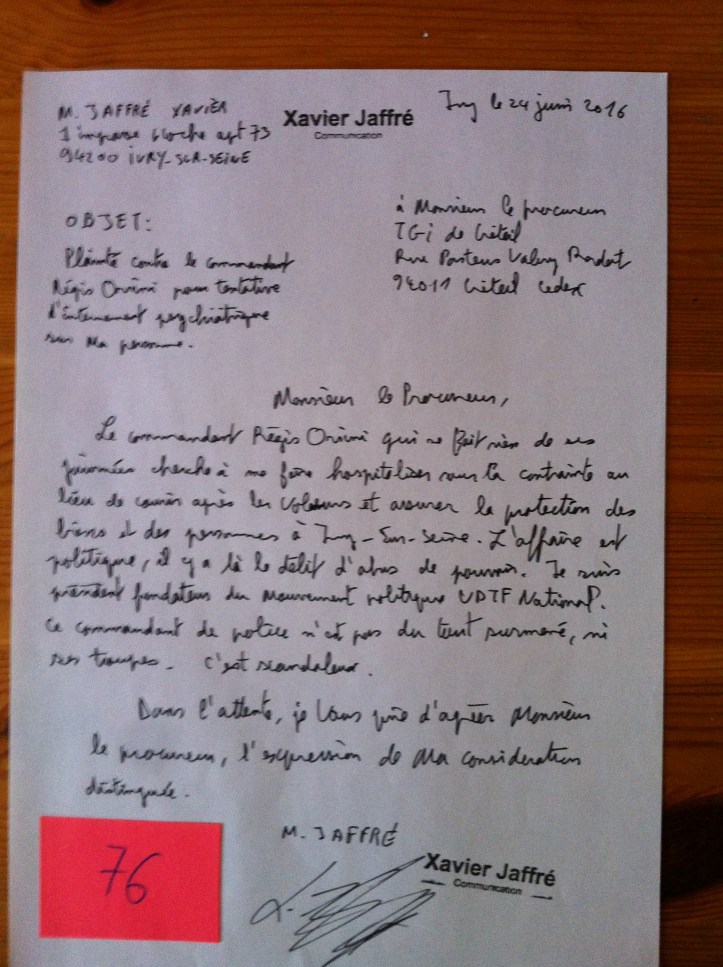 M. JAFFRÉ XAVIER
1 impasse apt 73
94200 IVRY-SUR-SEINE
Xavier Jaffré
Communication
Ivry le 24 juin 2016
à Monsieur le procureur
TGI de Créteil
Rue Pasteur Valery Radot
94011 Créteil Cedex
OBJET:
Plainte contre le commandant
Régis pour tentative
d'internement psychiatrique
sur ma personne.
Monsieur le Procureur,
Le commandant Régis qui ne fait rien de ses
journées cherche à me faire hospitaliser sous la contrainte au
lieu de courir après les voleurs et assurer la protection des
biens et des personnes à Ivry-Sur-Seine. L'affaire est
politique, il y a là le délit d'abus de pouvoir. Je suis
président fondateur du Mouvement politique UDTF National.
Ce commandant de police n'est pas du tout surmené, ni
ses troupes. C'est scandaleux.
Dans l'attente, je vous prie d'agréer Monsieur
le procureur, l'expression de ma considération
distinguée.
M. JAFFRÉ
Xavier Jaffré
Communication
76